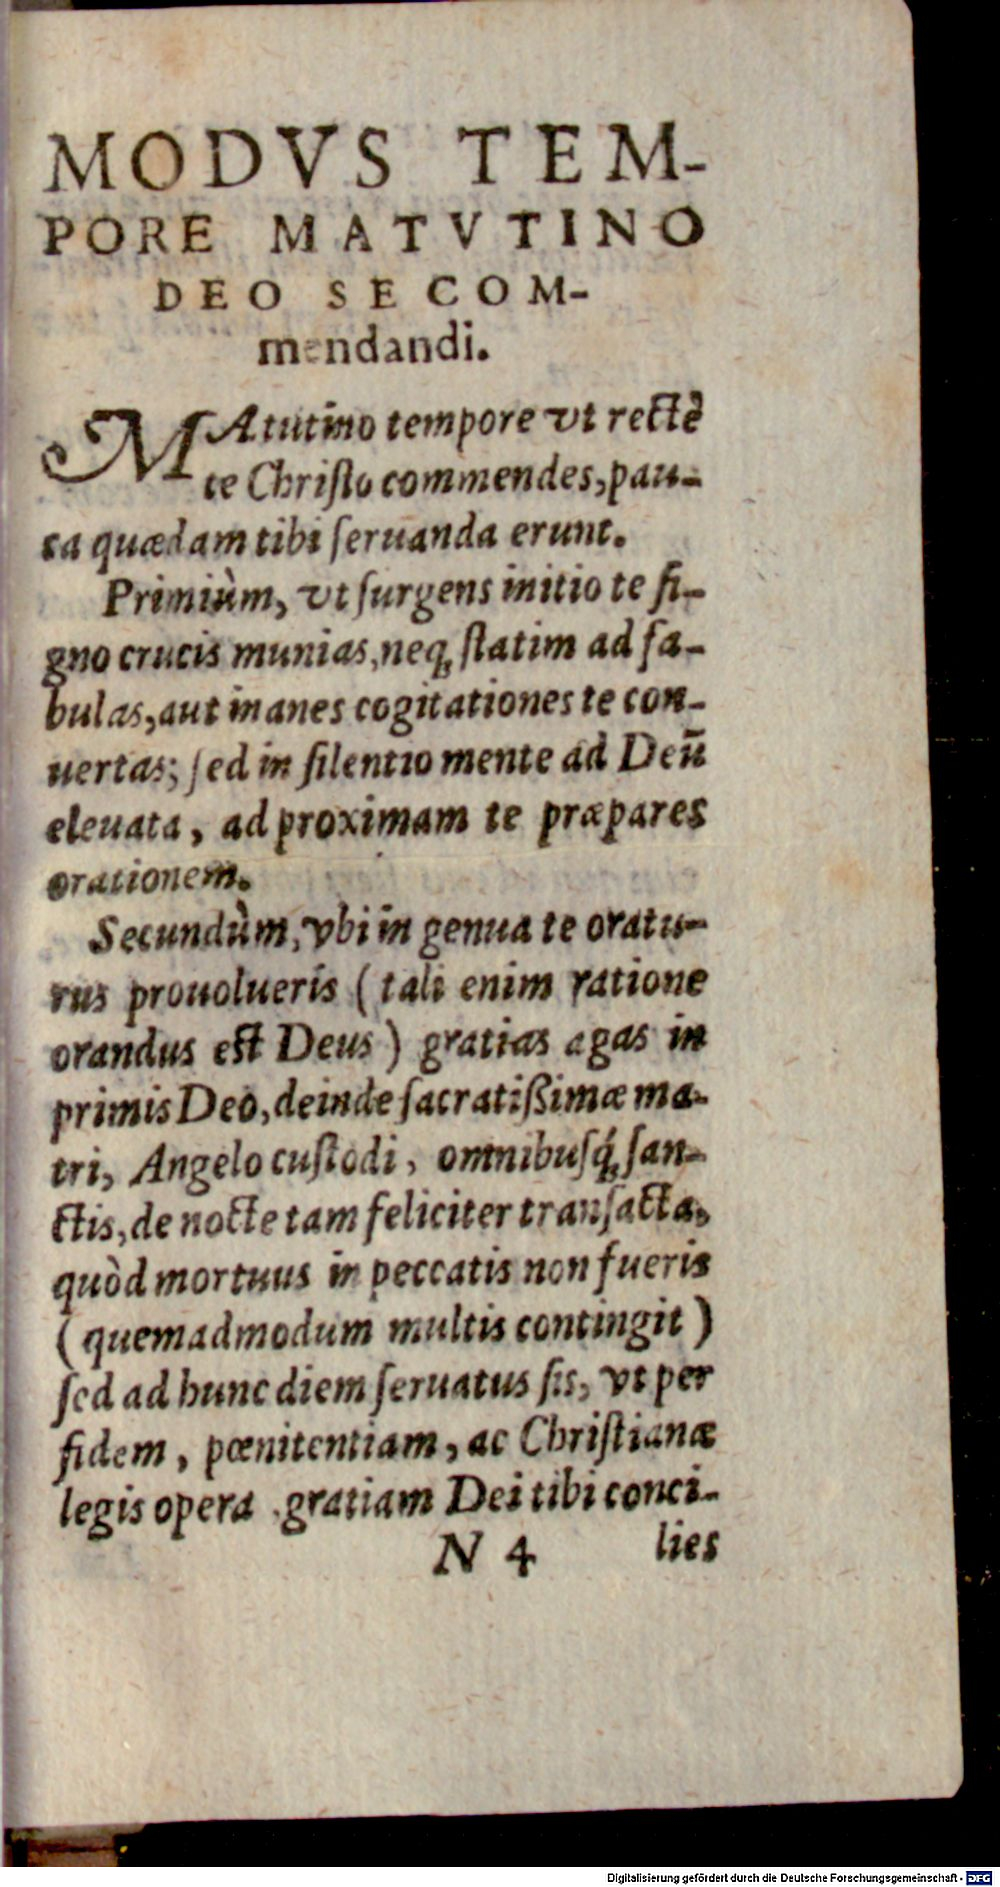 MODVS TEM-
PORE MATVTINO
DEO SE COM-
mendandi.
MAtutino tempore vt rectè
te Christo commendes, pau-
ca quædam tibi seruanda erunt.
Primiùm, vt surgens initio te si-
gno crucis munias, neq; statim ad fa-
bulas, aut inanes cogitationes te con-
uertas; sed in silentio mente ad Deū
eleuata, ad proximam te præpares
orationem.
Secundùm, vbi in genua te oratu-
rus prouolueris (tali enim ratione
orandus est Deus) gratias agas in
primis Deo, deinde sacratißimæ ma-
tri, Angelo custodi, omnibusq́; san-
ctis, de nocte tam feliciter transacta,
quòd mortuus in peccatis non fueris
(quemadmodum multis contingit)
sed ad hunc diem seruatus sis, vt per
fidem, pœnitentiam, ac Christianæ
legis opera gratiam Dei tibi conci-
N 4 lies
Digitalisierung gefördert durch die Deutsche Forschungsgemeinschaft - DFG